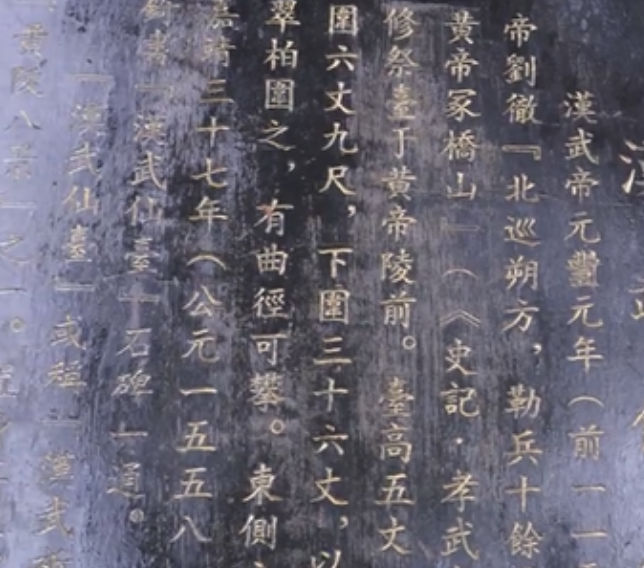 漢
漢武帝元豐元年（前一一
帝劉徹『北巡朔方，勒兵十餘
黃帝冢橋山』（《史記·孝武
修祭臺于黃帝陵前。臺高五丈
圍六丈九尺，下圍三十六丈，以
翠柏圍之，有曲徑可攀。東側
嘉靖三十七年（公元一五五八
漢武仙臺』石碑一通。
『漢武仙臺』或稱『漢武
『黃陵八景』之一。